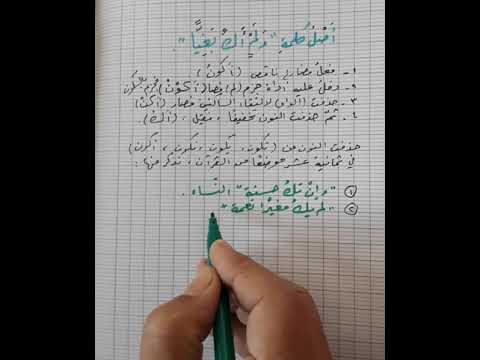 أَصْلُ كلمةِ "وَلَمْ أَكُ بَغِيًّا".
١ - فعلٌ مضارع ناقص (أكونُ)
٢ - دخلَ عليه أداة جزم (لم) فصار (أكوْنْ) مجزوم بالسكون
٣ - حذفت (الواو) لالتقاء الساكنين فصار (أكنْ)
٤ - ثمّ حذفت النون تخفيفًا، فقيل، (أكُ).
حذفت النون من (تكون، يكون، نكون، أكون)
في ثمانية عشر موضعًا من القرآن، نذكر منها:
① "وإنْ تكُ حسنة" النّساء.
② "لم يكُ مغيّرًا نعمة"